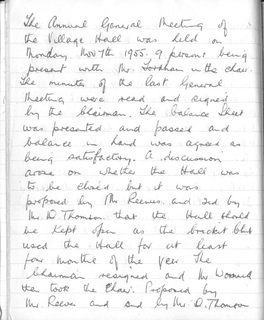 The Annual General Meeting of
the Village Hall was held on
Monday Nov 7th 1955. 9 persons being
present with Mr. in the chair.
The minutes of the last General
Meeting were read and signed
by the Chairman. The balance Sheet
was presented and passed and
balance in hand was agreed as
being satisfactory. A discussion
arose on whether the Hall was
to be closed but it was
proposed by Mr Reeves and 2nd by
Mr D. Thomson that the Hall should
be kept open as the cricket club
used the Hall for at least
four months of the year. The
Chairman resigned and Mr
then took the Chair. Proposed by
Mr. Reeves and 2nd by Mr D. Thomson